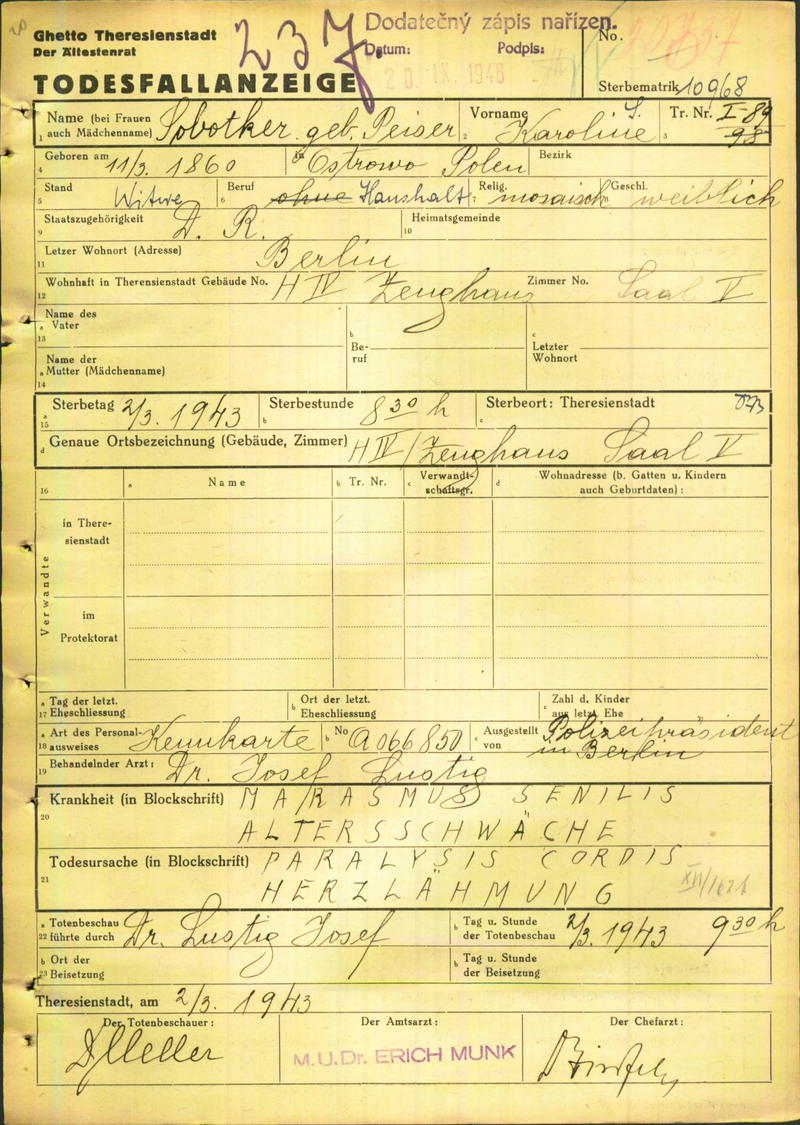 Ghetto Theresienstadt
Der Ältestenrat
TODESFALLANZEIGE
237.
Dodatečný zápis nařízen.
Datum: Podpis:
20. IX. 1948
No.
Sterbematrik 10968
Name (bei Frauen auch Mädchenname) Sobotker geb. Peiser
Vorname Karoline S.
Tr. Nr. I-89
98
1 2 3
4 Geboren am 11/3. 1860 in Ostrowo Polen Bezirk
5 Stand Witwe 6 Beruf ohne Haushalt 7 Relig. mosaisch 8 Geschl. weiblich
9 Staatszugehörigkeit D. R. 10 Heimatsgemeinde
11 Letzer Wohnort (Adresse) Berlin
12 Wohnhaft in Theresienstadt Gebäude No. H IV Zeughaus Zimmer No. Saal V
13 a Name des Vater b c
Be-ruf Letzter Wohnort
14 a Name der Mutter (Mädchenname)
15 a Sterbetag 2/3. 1943 b Sterbestunde 8 30 h c Sterbeort: Theresienstadt
d Genaue Ortsbezeichnung (Gebäude, Zimmer) H IV/Zeughaus Saal V
16 a Name b Tr. Nr. c Verwandt-schaftsgr. d Wohnadresse (b. Gatten u. Kindern auch Geburtdaten):
Verwandte
in There-
sienstadt
im
Protektorat
17 a Tag der letzt. Eheschliessung b Ort der letzt. Eheschliessung c Zahl d. Kinder aus letzt. Ehe
18 a Art des Personal-ausweises Kennkarte b No A 066850 c Ausgestellt von Polizeipräsident in Berlin
19 Behandelnder Arzt: Dr. Josef Lustig
20 Krankheit (in Blockschrift) MARASMUS SENILIS
ALTERSSCHWÄCHE
21 Todesursache (in Blockschrift) PARALYSIS CORDIS
HERZLÄHMUNG
22 a Totenbeschau führte durch Dr. Lustig Josef b Tag u. Stunde der Totenbeschau 2/3. 1943 9 30 h
23 b Ort der Beisetzung b Tag u. Stunde der Beisetzung
Theresienstadt, am 2/3. 1943
Der Totenbeschauer: Der Amtsarzt: Der Chefarzt:
M.U.Dr. ERICH MUNK